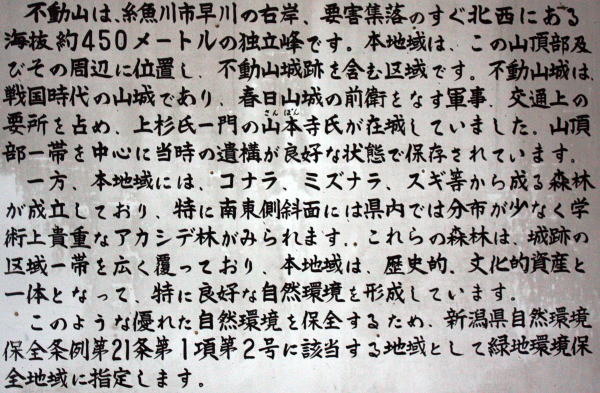 不動山は、糸魚川市早川の右岸、要害集落のすぐ北西にある
海抜約450メートルの独立峰です。本地域は、この山頂部及
びその周辺に位置し、不動山城跡を含む区域です。不動山城は、
戦国時代の山城であり、春日山城の前衛をなす軍事、交通上の
さんぽん
要所を占め、上杉氏一門の山本寺氏が在城していました。山頂
部一帯を中心に当時の遺構が良好な状態で保存されています。
一方、本地域には、コナラ、ミズナラ、スギ等から成る森林
が成立しており、特に南東側斜面には県内では分布が少なく学
術上貴重なアカシデ林がみられます．．これらの森林は、城跡の
区域一帯を広く覆っており、本地域は、歴史的、文化的資産と
一体となって、特に良好な自然環境を形成しています。
このような優れた自然環境を保全するため、新潟県自然環境
保全条例第21条第1項第2号に該当する地域として緑地環境保
全地域に指定します。